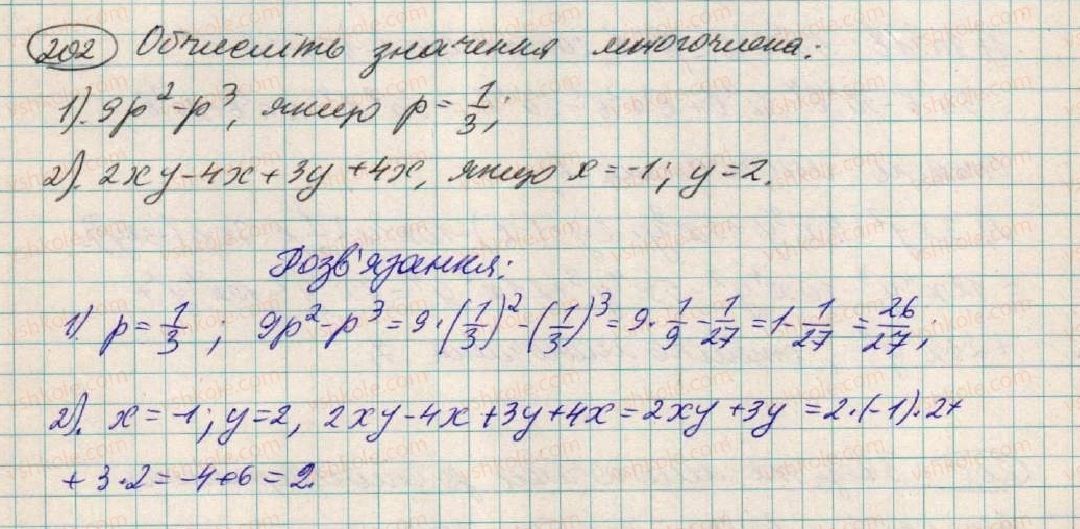 202 Обчисліть значення многочлена:
1). 9p² - p³, якщо p = 1/3;
2). 2xy - 4x + 3y + 4x, якщо x = -1; y = 2.
Розв'язання:
1) p = 1/3 ; 9p² - p³ = 9 · (1/3)² - (1/3)³ = 9 · 1/9 - 1/27 = 1 - 1/27 = 26/27;
2). x = -1; y = 2, 2xy - 4x + 3y + 4x = 2xy + 3y = 2 · (-1) · 2 +
+ 3 · 2 = -4 + 6 = 2.